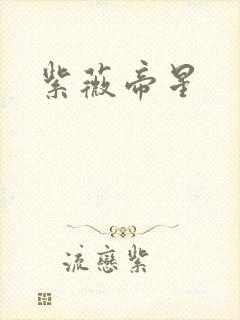 紫薇帝星
流戀紫